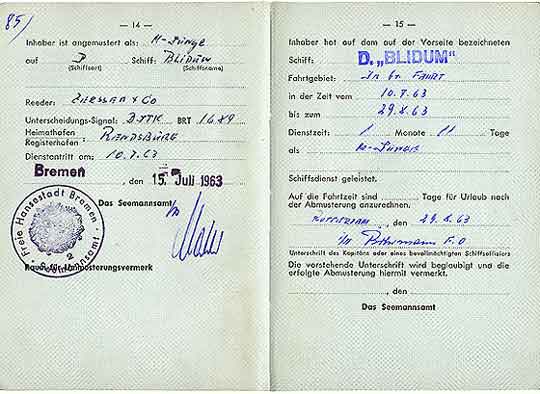 85/
— 14 —
Inhaber ist angemustert als: M-Junge
auf D Schiff: BLIDUM
(Schiffsart) (Schiffsname)
Reeder: ZERSSEN & Co
Unterscheidungs-Signal: BRT 1689
Heimathafen
Registerhafen: RENDSBURG
Dienstantritt am: 10.7.63
Bremen, den 15. Juli 1963
Das Seemannsamt
Freie Hansestadt Bremen
2
Seemannsamt
Raum für Anmusterungsvermerk
— 15 —
Inhaber hat auf dem auf der Vorseite bezeichneten
Schiff: D. „BLIDUM"
Fahrtgebiet: In gr. FAHRT
in der Zeit vom 10.7.63
bis zum 29.8.63
Dienstzeit: 1 Monate 11 Tage
als M-Junge
Schiffsdienst geleistet.
Auf die Fahrtzeit sind Tage für Urlaub nach
der Abmusterung anzurechnen.
ROTTERDAM, den 29.8.63
Unterschrift des Kapitäns oder eines bevollmächtigten Schiffsoffiziers
Die vorstehende Unterschrift wird beglaubigt und die
erfolgte Abmusterung hiermit vermerkt.
, den
Das Seemannsamt